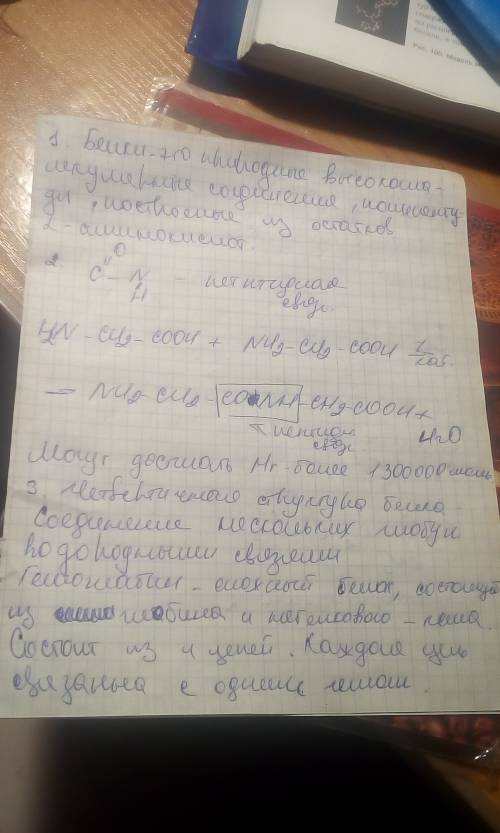 1. Белки - это природные высокомо-
лекулярные соединения, полипепти-
ды, построенные из остатков
α-аминокислот.
2. C=O - N H - пептидная
связь.
H2N - CH2 - COOH + NH2 - CH2 - COOH
→ NH2 - CH2 - CO NH - CH2 - COOH +
H2O
связь
Могут достигать Mr более 1300000
3. Четвертичная структура белка.
Соединение нескольких глобул
водородными связями
Гемоглобин - сложный белок, состоящий
из глобина и небелкового - гема.
Состоит из 4 цепей. Каждая цепь
связанна с одним гемом.
Рис. 100. Модель